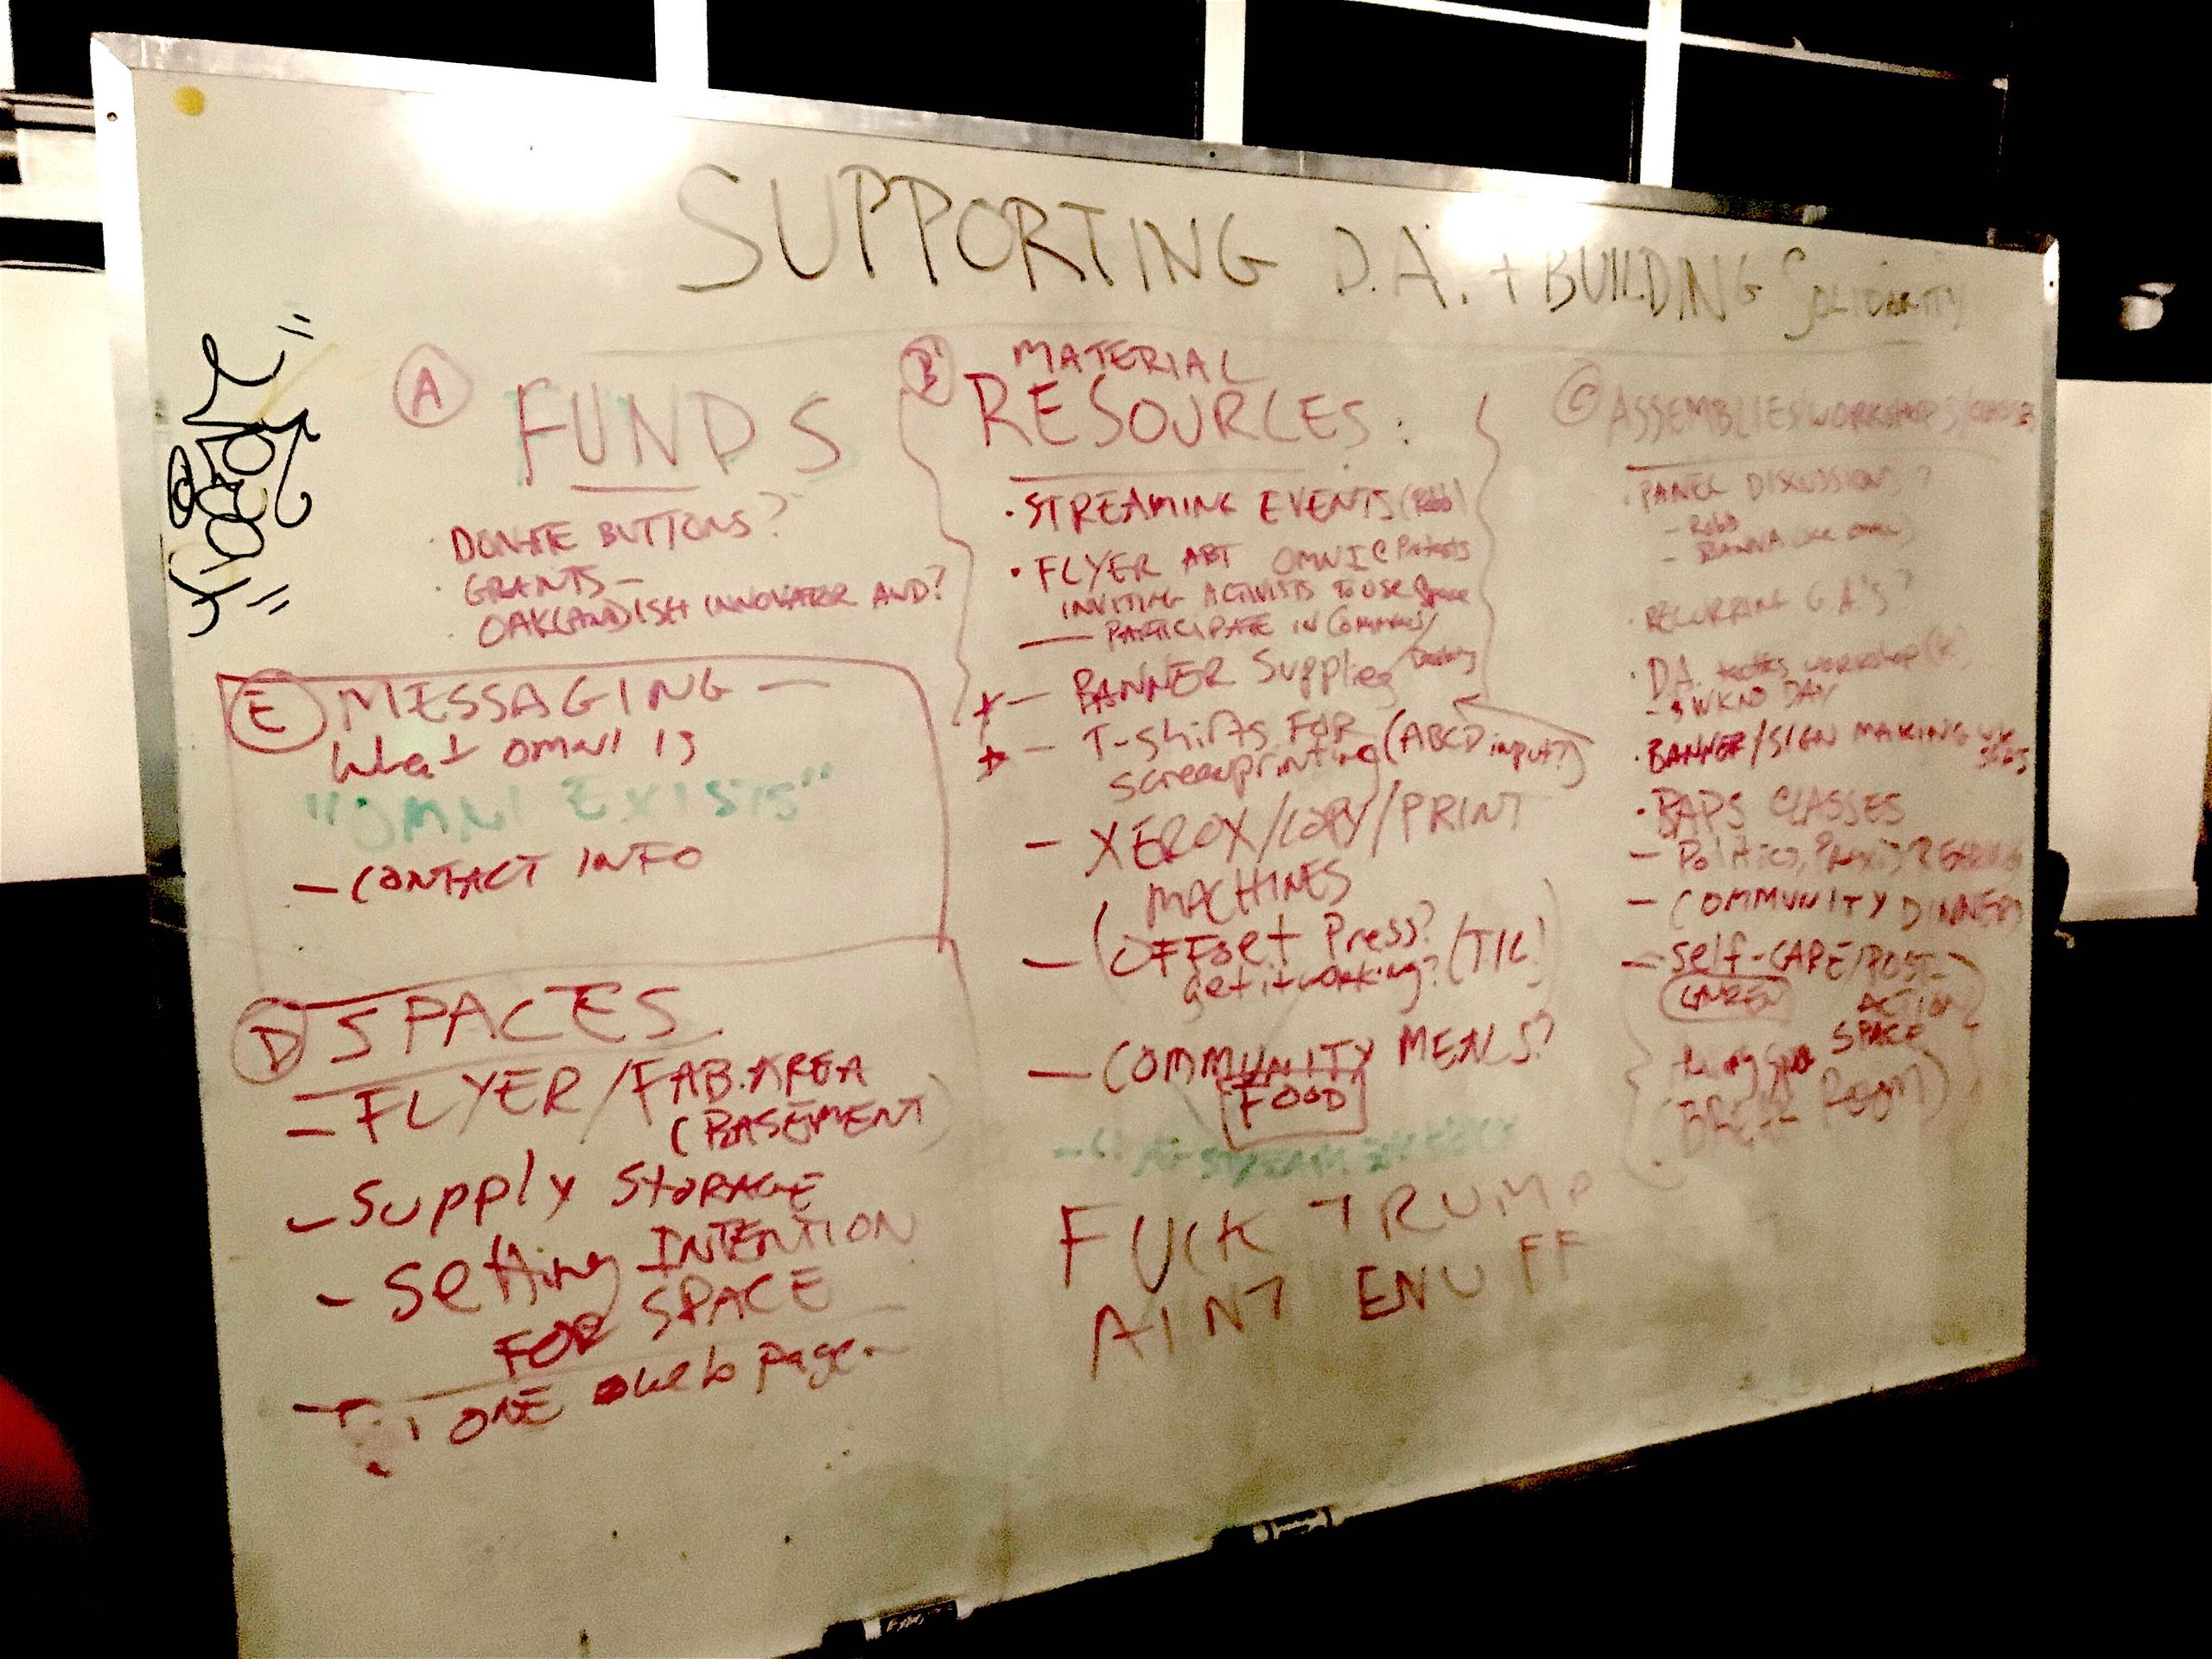 SUPPORTING D.A. + BUILDING SOLIDARITY
A FUNDS
· DONATE BUTTONS?
· GRANTS –
· OAKLANDISH INNOVATOR AND?
E MESSAGING —
What OMNI IS
"OMNI EXISTS"
— CONTACT INFO
D SPACES
– FLYER/FAB. AREA
(BASEMENT)
– Supply STORAGE
– Setting INTENTION
FOR SPACE
ONE web page
B MATERIAL
RESOURCES:
· STREAMING EVENTS (Robb)
· FLYER ABT OMNI @ Protests
INVITING ACTIVISTS TO USE Space
— PARTICIPATE IN
– BANNER Supplies
– T-Shirts FOR
screenprinting (ABCD input?)
– XEROX/COPY/PRINT
MACHINES
– (OFFset Press?
get it working? (TIL)
– COMMUNITY MEALS?
FOOD
FUCK TRUMP
AINT ENUFF
C ASSEMBLIES/WORKSHOPS/
· PANEL DISCUSSIONS?
– Robb
· RECURRING G.A'S?
· D.A. workshop
– WKND DAY
· BANNER/SIGN MAKING
· BAPS CLASSES
– Politics, Praxis, READING
– COMMUNITY DINNERS
– Self-CARE/POST-
ACTION
SPACE
ROOM)